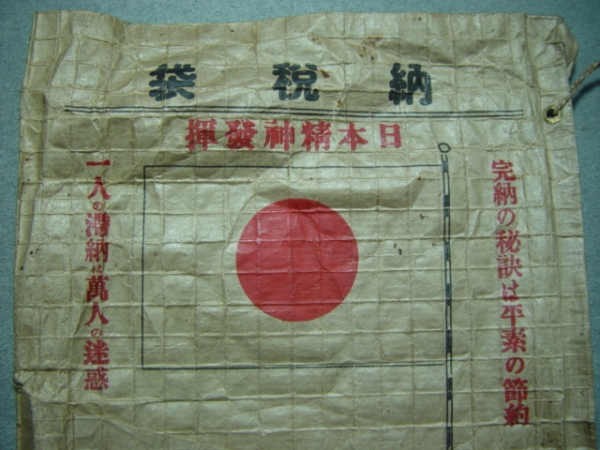 納税袋
日本精神發揮
完納の秘訣は平素の節約
一人の滞納は萬人の迷惑